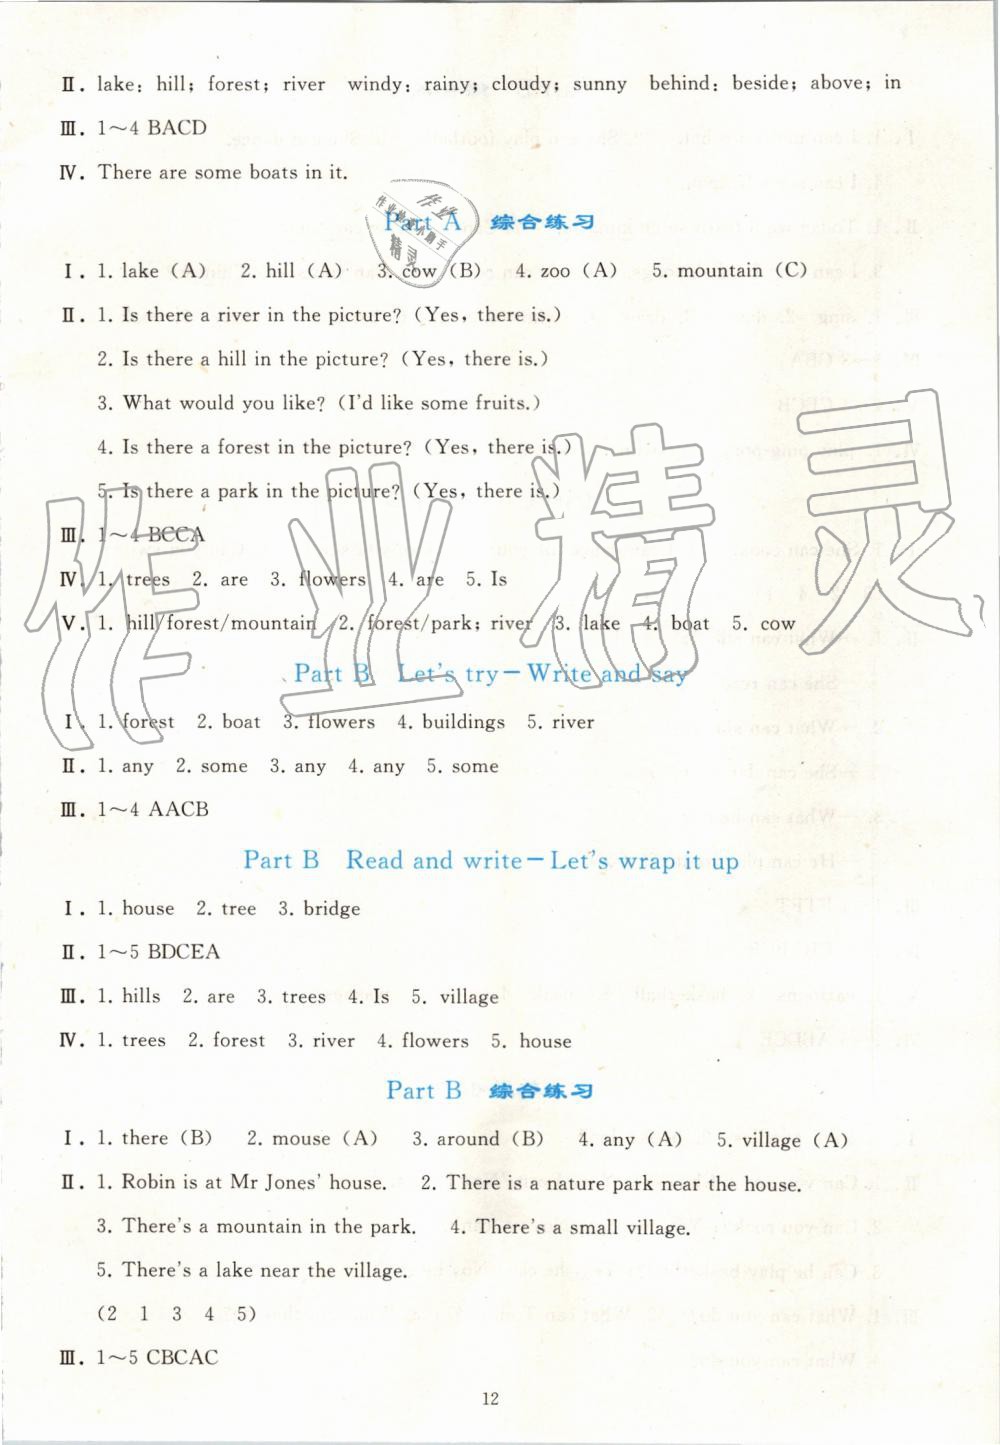 Ⅱ. lake: hill; forest; river windy: rainy; cloudy; sunny behind: beside; above; in
Ⅲ. 1～4 BACD
Ⅳ. There are some boats in it.
Part A 综合练习
Ⅰ. 1. lake (A) 2. hill (A) 3. cow (B) 4. zoo (A) 5. mountain (C)
Ⅱ. 1. Is there a river in the picture? (Yes, there is.)
2. Is there a hill in the picture? (Yes, there is.)
3. What would you like? (I'd like some fruits.)
4. Is there a forest in the picture? (Yes, there is.)
5. Is there a park in the picture? (Yes, there is.)
Ⅲ. 1～4 BCCA
Ⅳ. 1. trees 2. are 3. flowers 4. are 5. Is
Ⅴ. 1. hill/forest/mountain 2. forest/park; river 3. lake 4. boat 5. cow
Part B Let's try－Write and say
Ⅰ. 1. forest 2. boat 3. flowers 4. buildings 5. river
Ⅱ. 1. any 2. some 3. any 4. any 5. some
Ⅲ. 1～4 AACB
Part B Read and write－Let's wrap it up
Ⅰ. 1. house 2. tree 3. bridge
Ⅱ. 1～5 BDCEA
Ⅲ. 1. hills 2. are 3. trees 4. Is 5. village
Ⅳ. 1. trees 2. forest 3. river 4. flowers 5. house
Part B 综合练习
Ⅰ. 1. there (B) 2. mouse (A) 3. around (B) 4. any (A) 5. village (A)
Ⅱ. 1. Robin is at Mr Jones' house. 2. There is a nature park near the house.
3. There's a mountain in the park. 4. There's a small village.
5. There's a lake near the village.
(2 1 3 4 5)
Ⅲ. 1～5 CBCAC
12
作业精灵